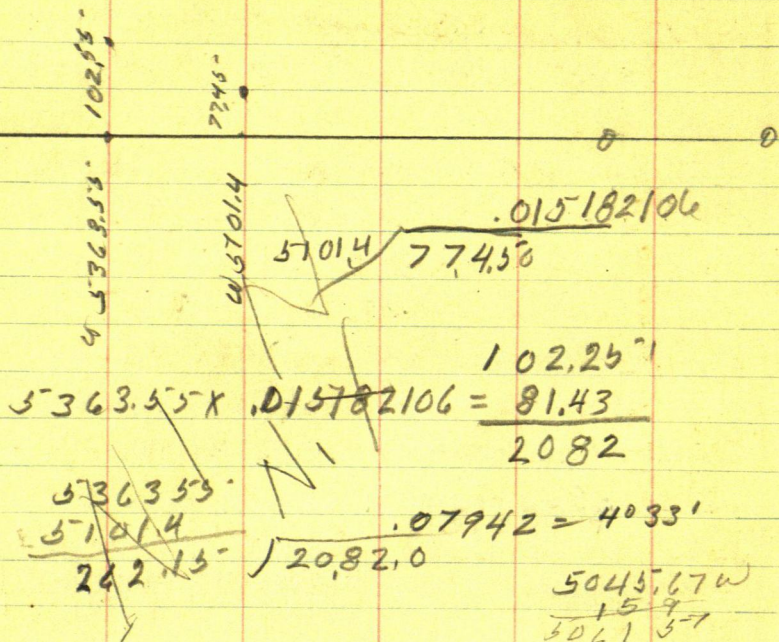 102.55
77.45
W 5363.55
W 5101.4
.015182106
5101.4 77.450
102.25
5363.55 X .015182106 = 81.43
2082
5363.55
5101.4
262.15
.07942 = 4°33'
) 20.82.0
5045.67 W
15 9
5061 57